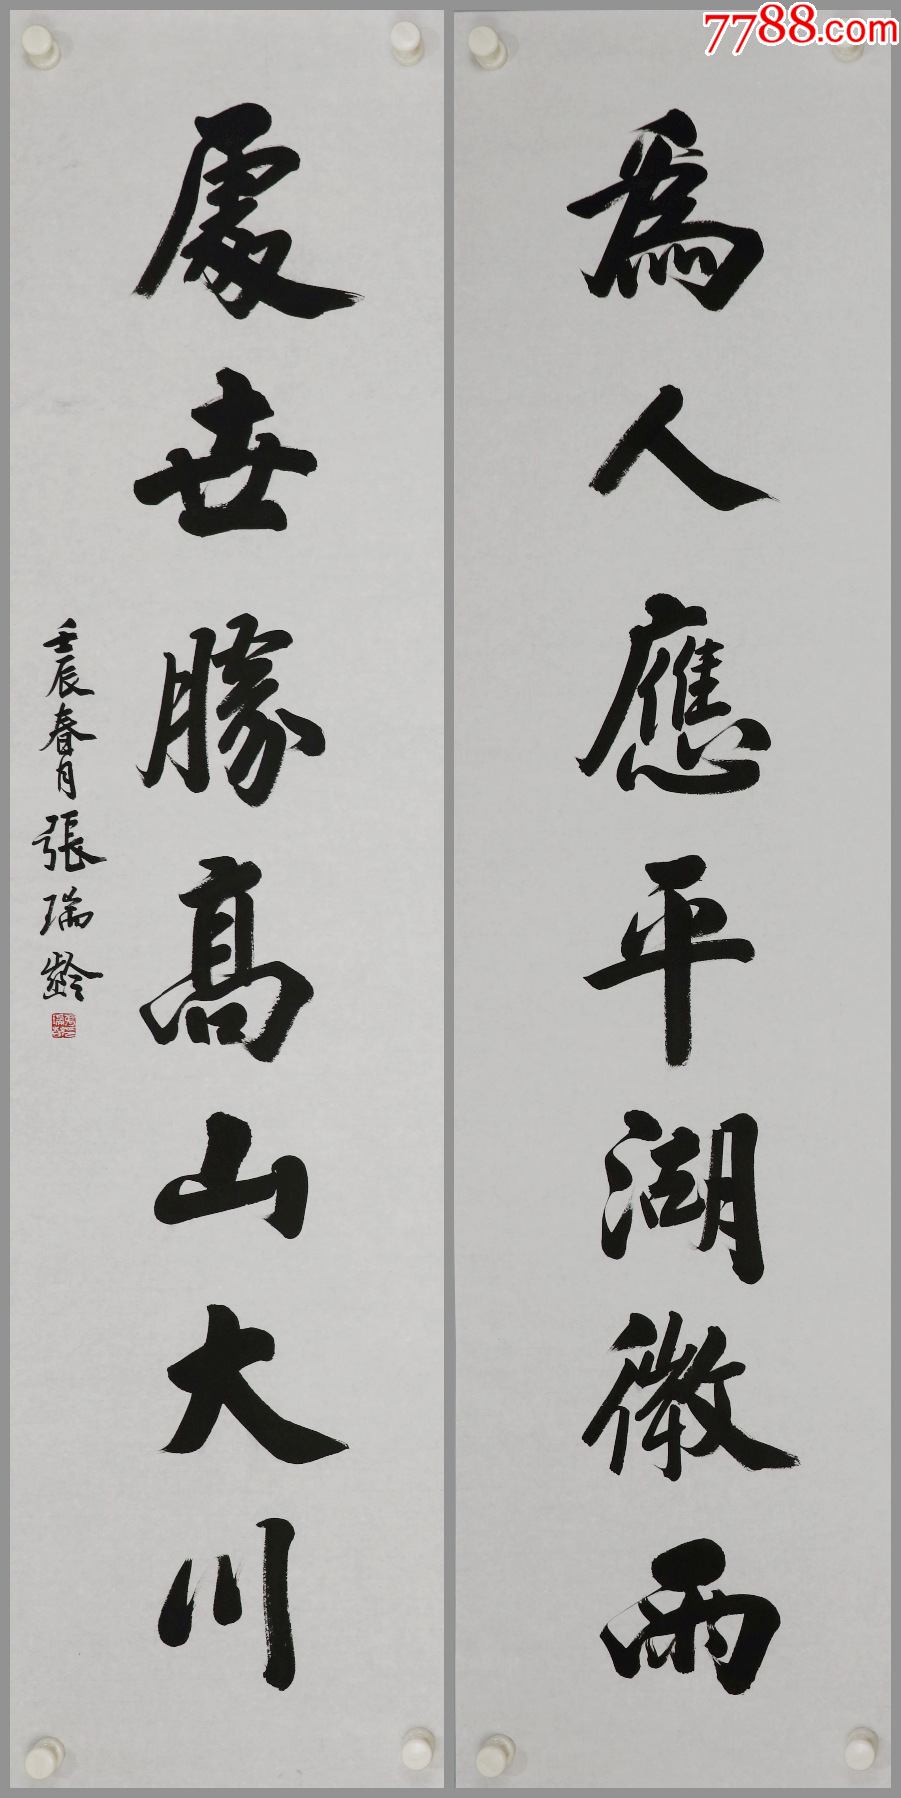 7788.com
為人應平湖微雨
處世勝高山大川
壬辰春月張瑞齡